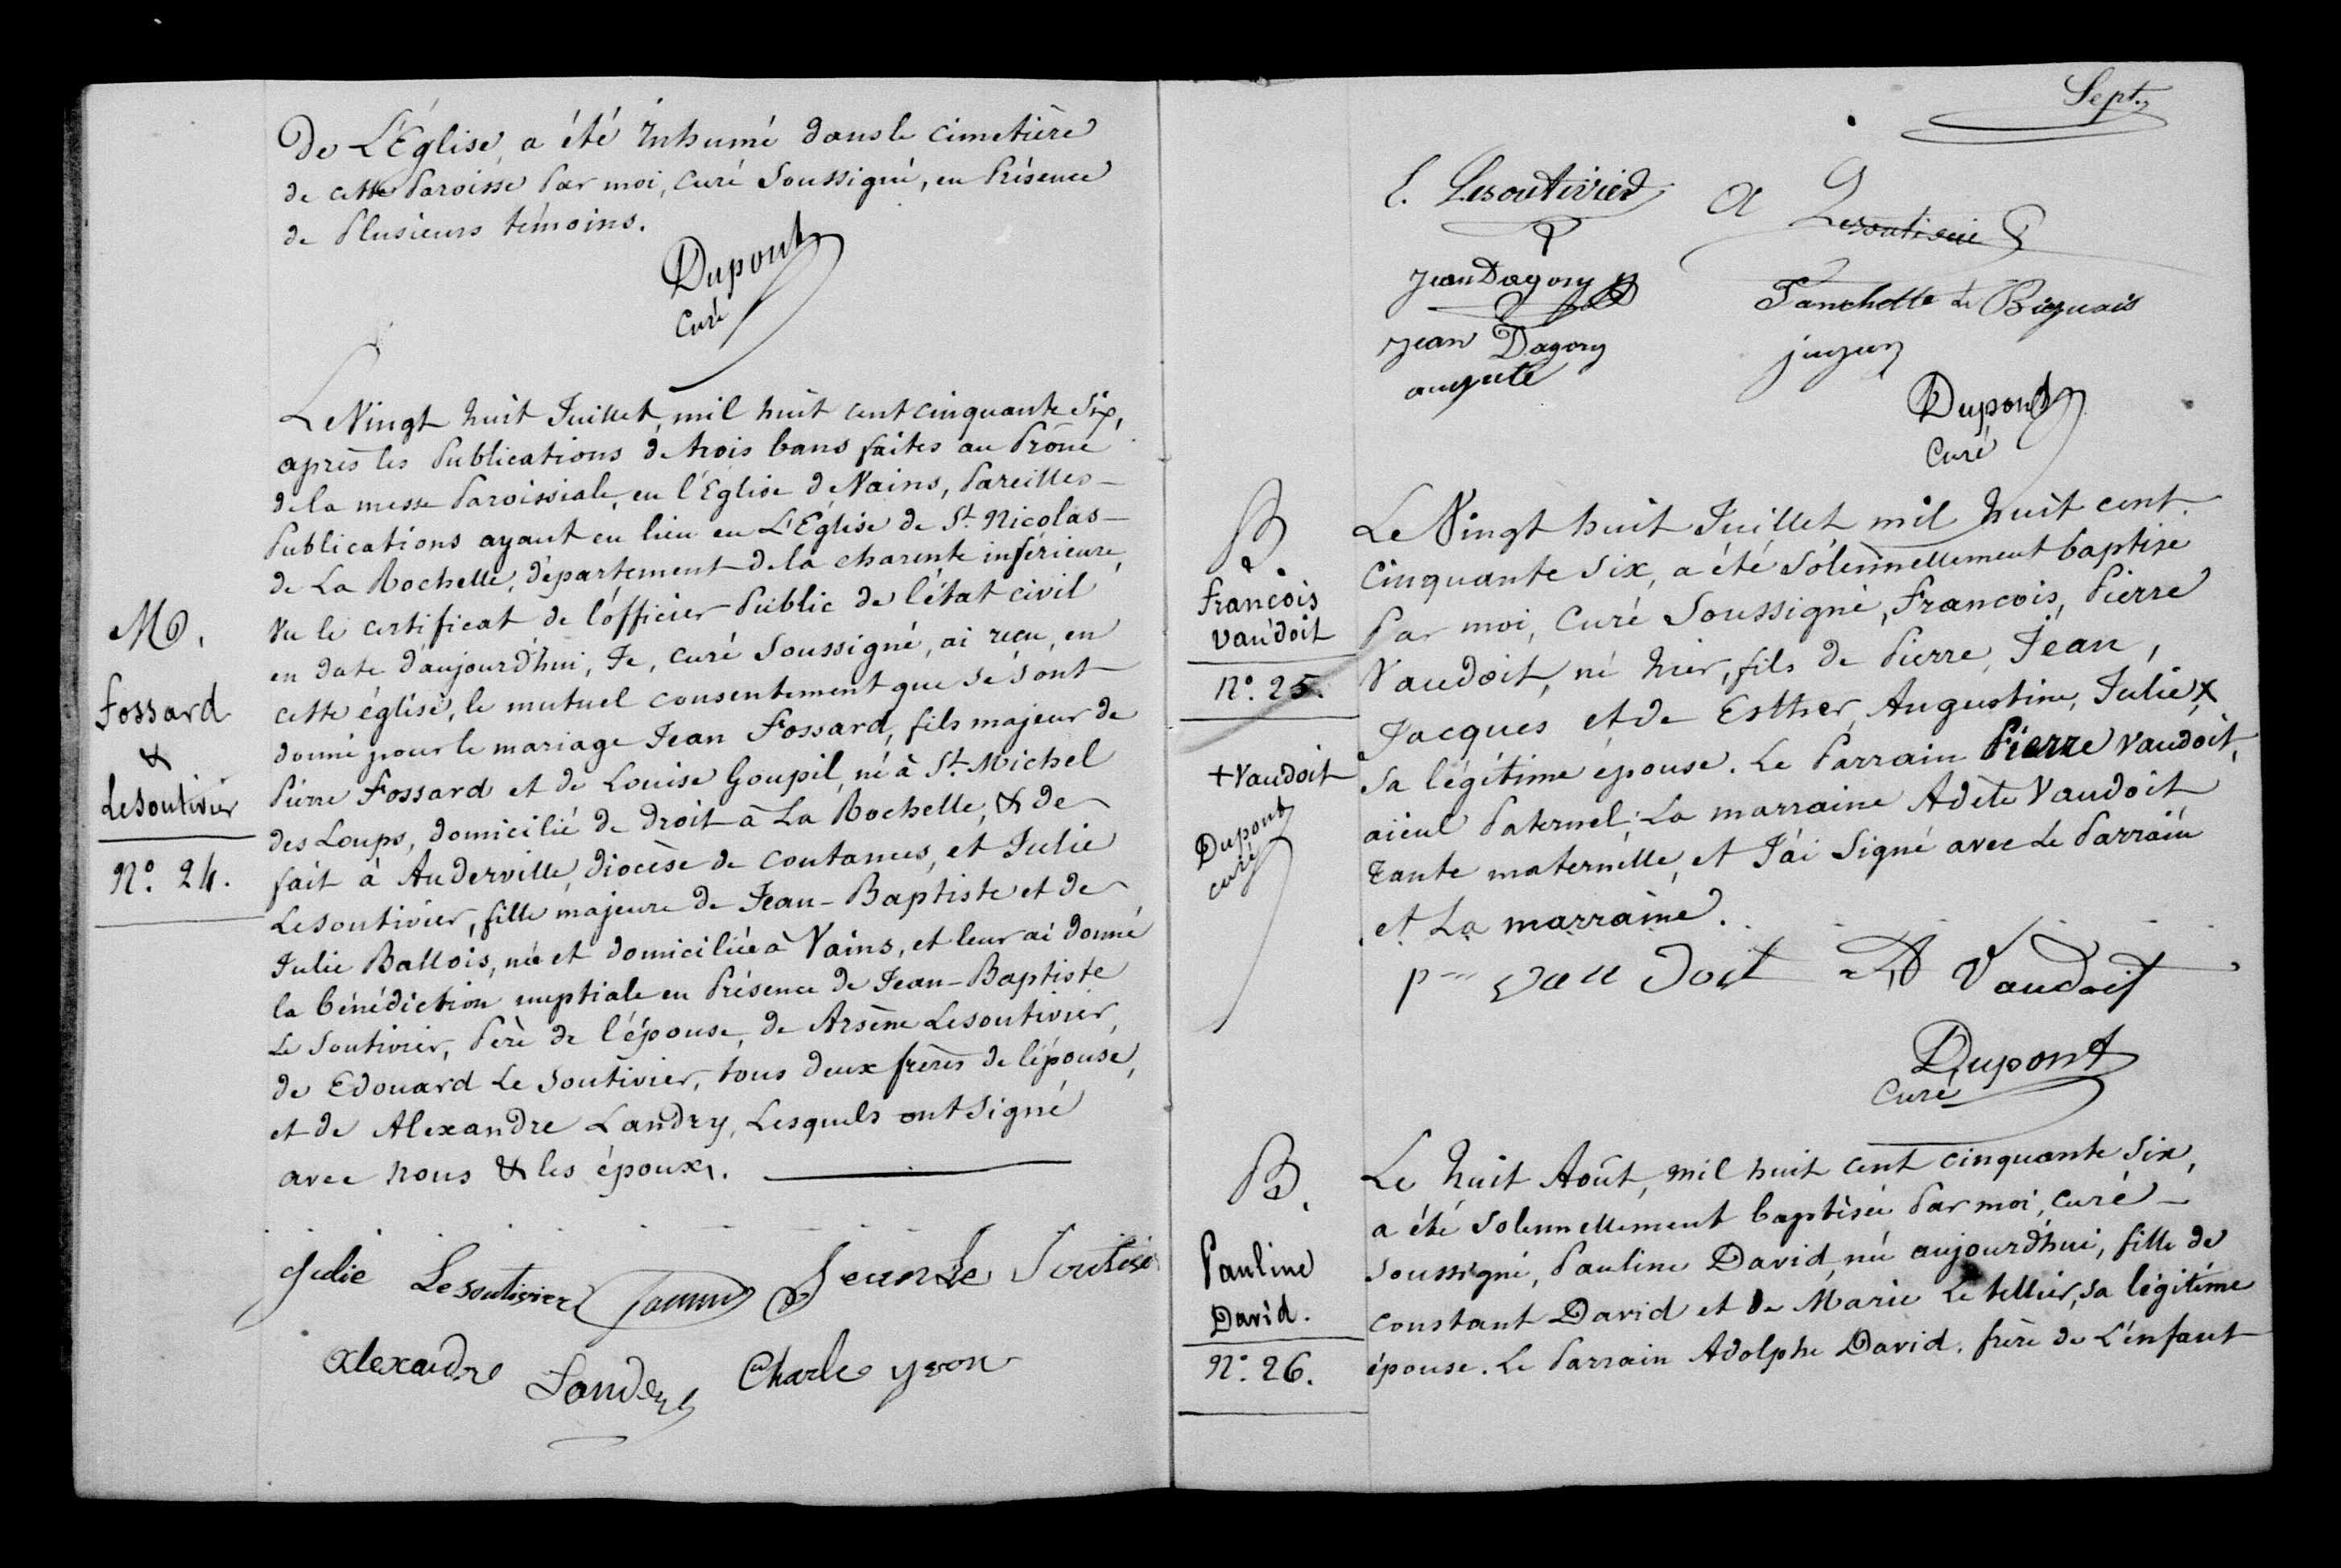 De L'Église, a été Inhumé dans le cimetière
de cette Paroisse Par moi, curé Soussigné, en Présence
de Plusieurs témoins.
Dupont
Curé
M.
Fossard
&
Lesoutivier
N°. 24.
Le Vingt huit Juillet, mil huit cent cinquante Six,
après les Publications de trois bans faites au Prône
de la messe Paroissiale, en l'Église de Vains, Pareilles
Publications ayant eu lieu en L'Église de St. Nicolas
de La Rochelle, département de la charente inférieure,
Vu le certificat de l'officier Public de l'état civil
en date d'aujourd'hui, Je, curé Soussigné, ai reçu, en
cette église, le mutuel consentement que se sont
donné pour le mariage Jean Fossard, fils majeur de
Pierre Fossard et de Louise Goupil, né à St. Michel
des Loups, domicilié de droit à La Rochelle, & de
fait à Auderville, diocèse de coutances, et Julie
Lesoutivier, fille majeure de Jean-Baptiste et de
Julie Ballois, née et domiciliée à Vains, et leur ai donné
la bénédiction nuptiale en Présence de Jean-Baptiste
Le Soutivier, Père de l'épouse, de Arsène Lesoutivier,
de Edouard Le Soutivier, tous deux frères de l'épouse,
et de Alexandre Landry, Lesquels ont Signé
avec nous & les époux.
Julie Lesoutivier Jean Le Soutivier
Alexandre Landry Charles yvon
Sept.
E. Lesoutivier A Lesoutivier
Jean Dagory Fanchette Le Biguais
Jean Dagory
auguste
Dupont
Curé
B.
François
Vaudoit
N°. 25.
+ Vaudoit
Dupont
curé
Le Vingt huit Juillet mil huit cent
Cinquante Six, a été Solennellement baptisé
Par moi, Curé Soussigné, François, Pierre
Vaudoit, né hier, fils de Pierre, Jean,
Jacques et de Esther, Augustine, Julie X
Sa légitime épouse. Le Parrain Pierre Vaudoit,
aieul Paternel; La marraine Adèle Vaudoit
Tante maternelle, et J'ai Signé avec Le Parrain
et La marraine.
prre vau doit A Vaudoit
Dupont
Curé
B.
Pauline
David.
N°. 26.
Le huit Août, mil huit cent cinquante Six,
a été Solennellement baptisée Par moi, curé
Soussigné, Pauline David, née aujourd'hui, fille de
constant David et de Marie Le tellier, Sa légitime
épouse. Le Parrain Adolphe David, frère de L'enfant